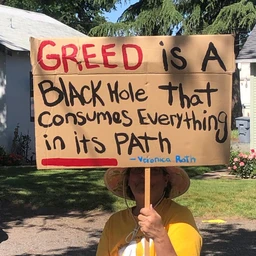 GREED is A
BLACK Hole That
consumes Everything
in its PATH
- Veronica Roth